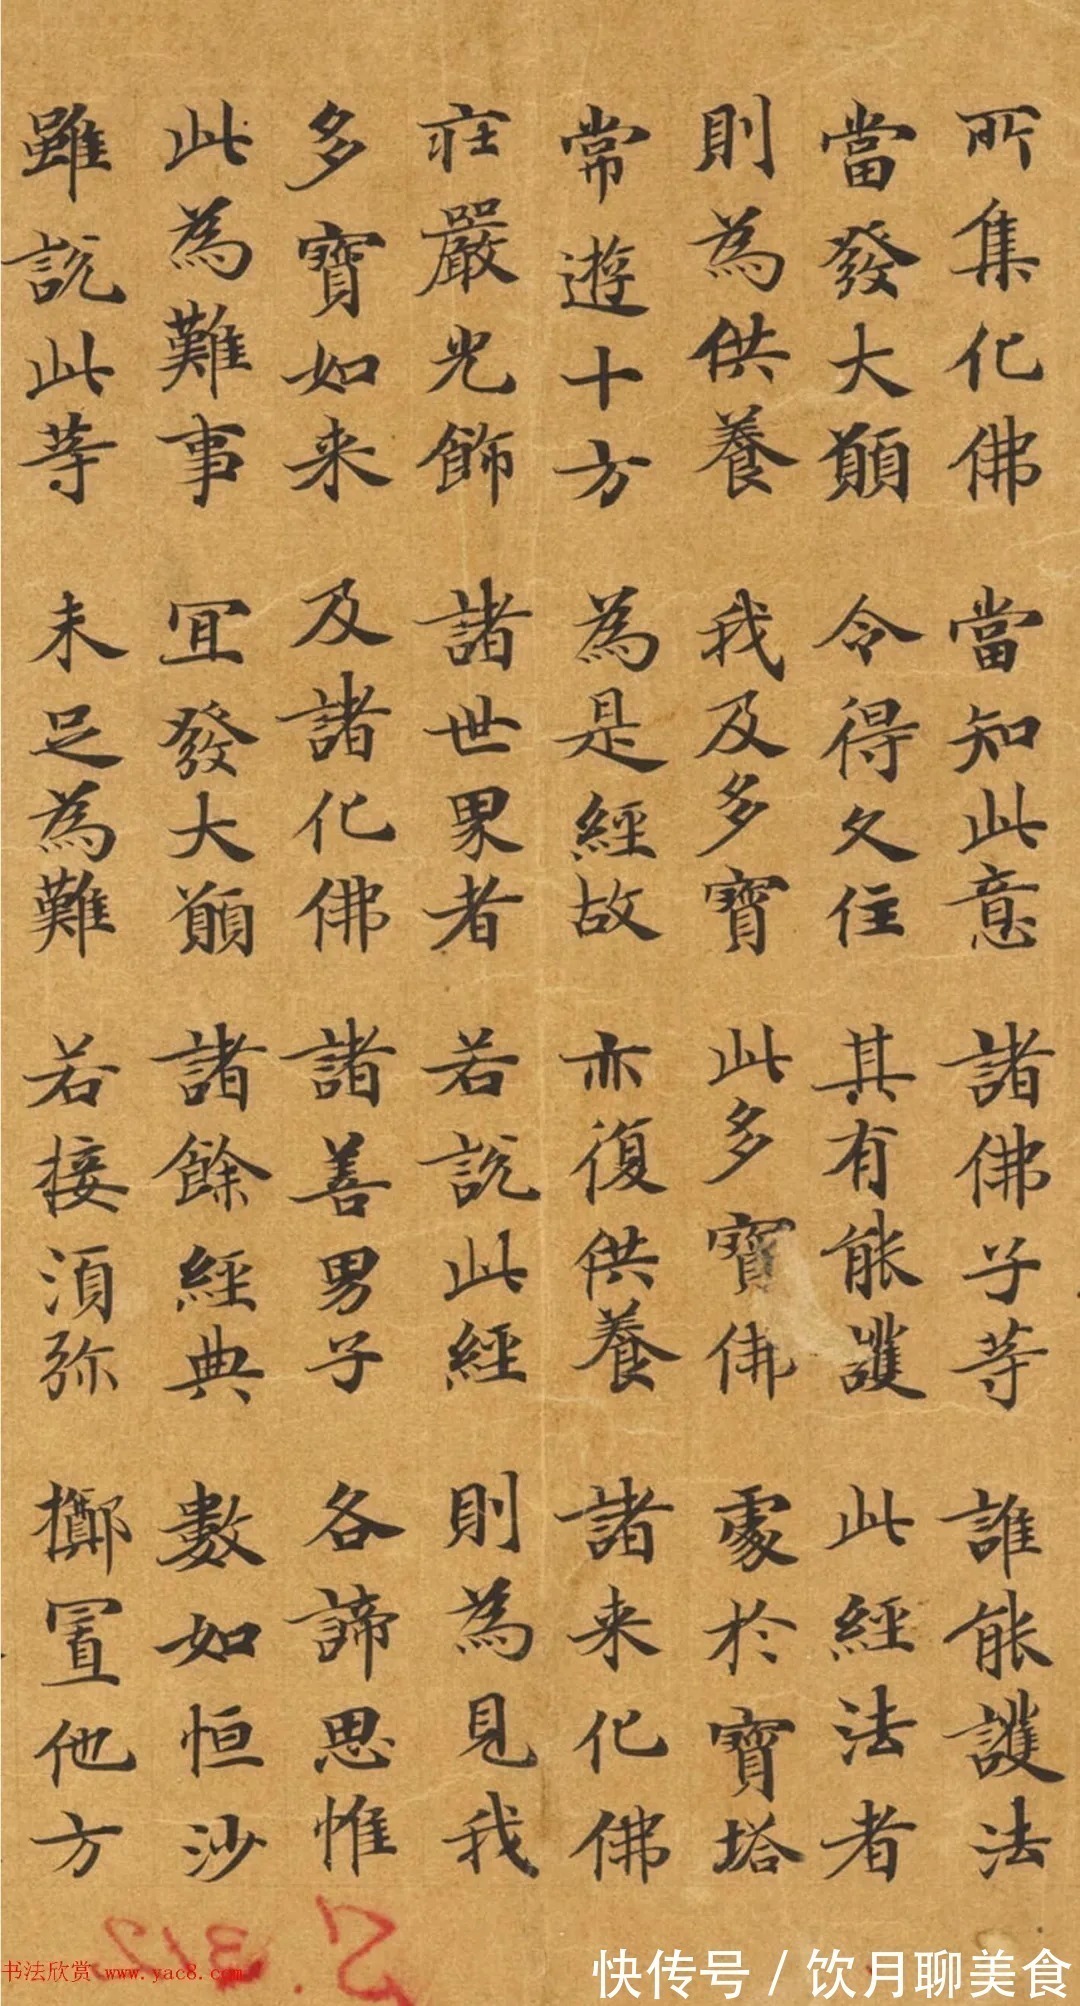 所集化佛 當知此意 諸佛子等 誰能護法
當發大願 令得久住 其有能護 此經法者
則為供養 我及多寶 此多寶佛 處於寶塔
常遊十方 為是經故 亦復供養 諸来化佛
莊嚴光飾 諸世界者 若說此經 則為見我
多寶如来 及諸化佛 諸善男子 各諦思惟
此為難事 宜發大願 諸餘經典 數如恒沙
雖說此等 未足為難 若接須弥 擲置他方
书法欣赏 www.yac8.com
快传号/饮月聊美食